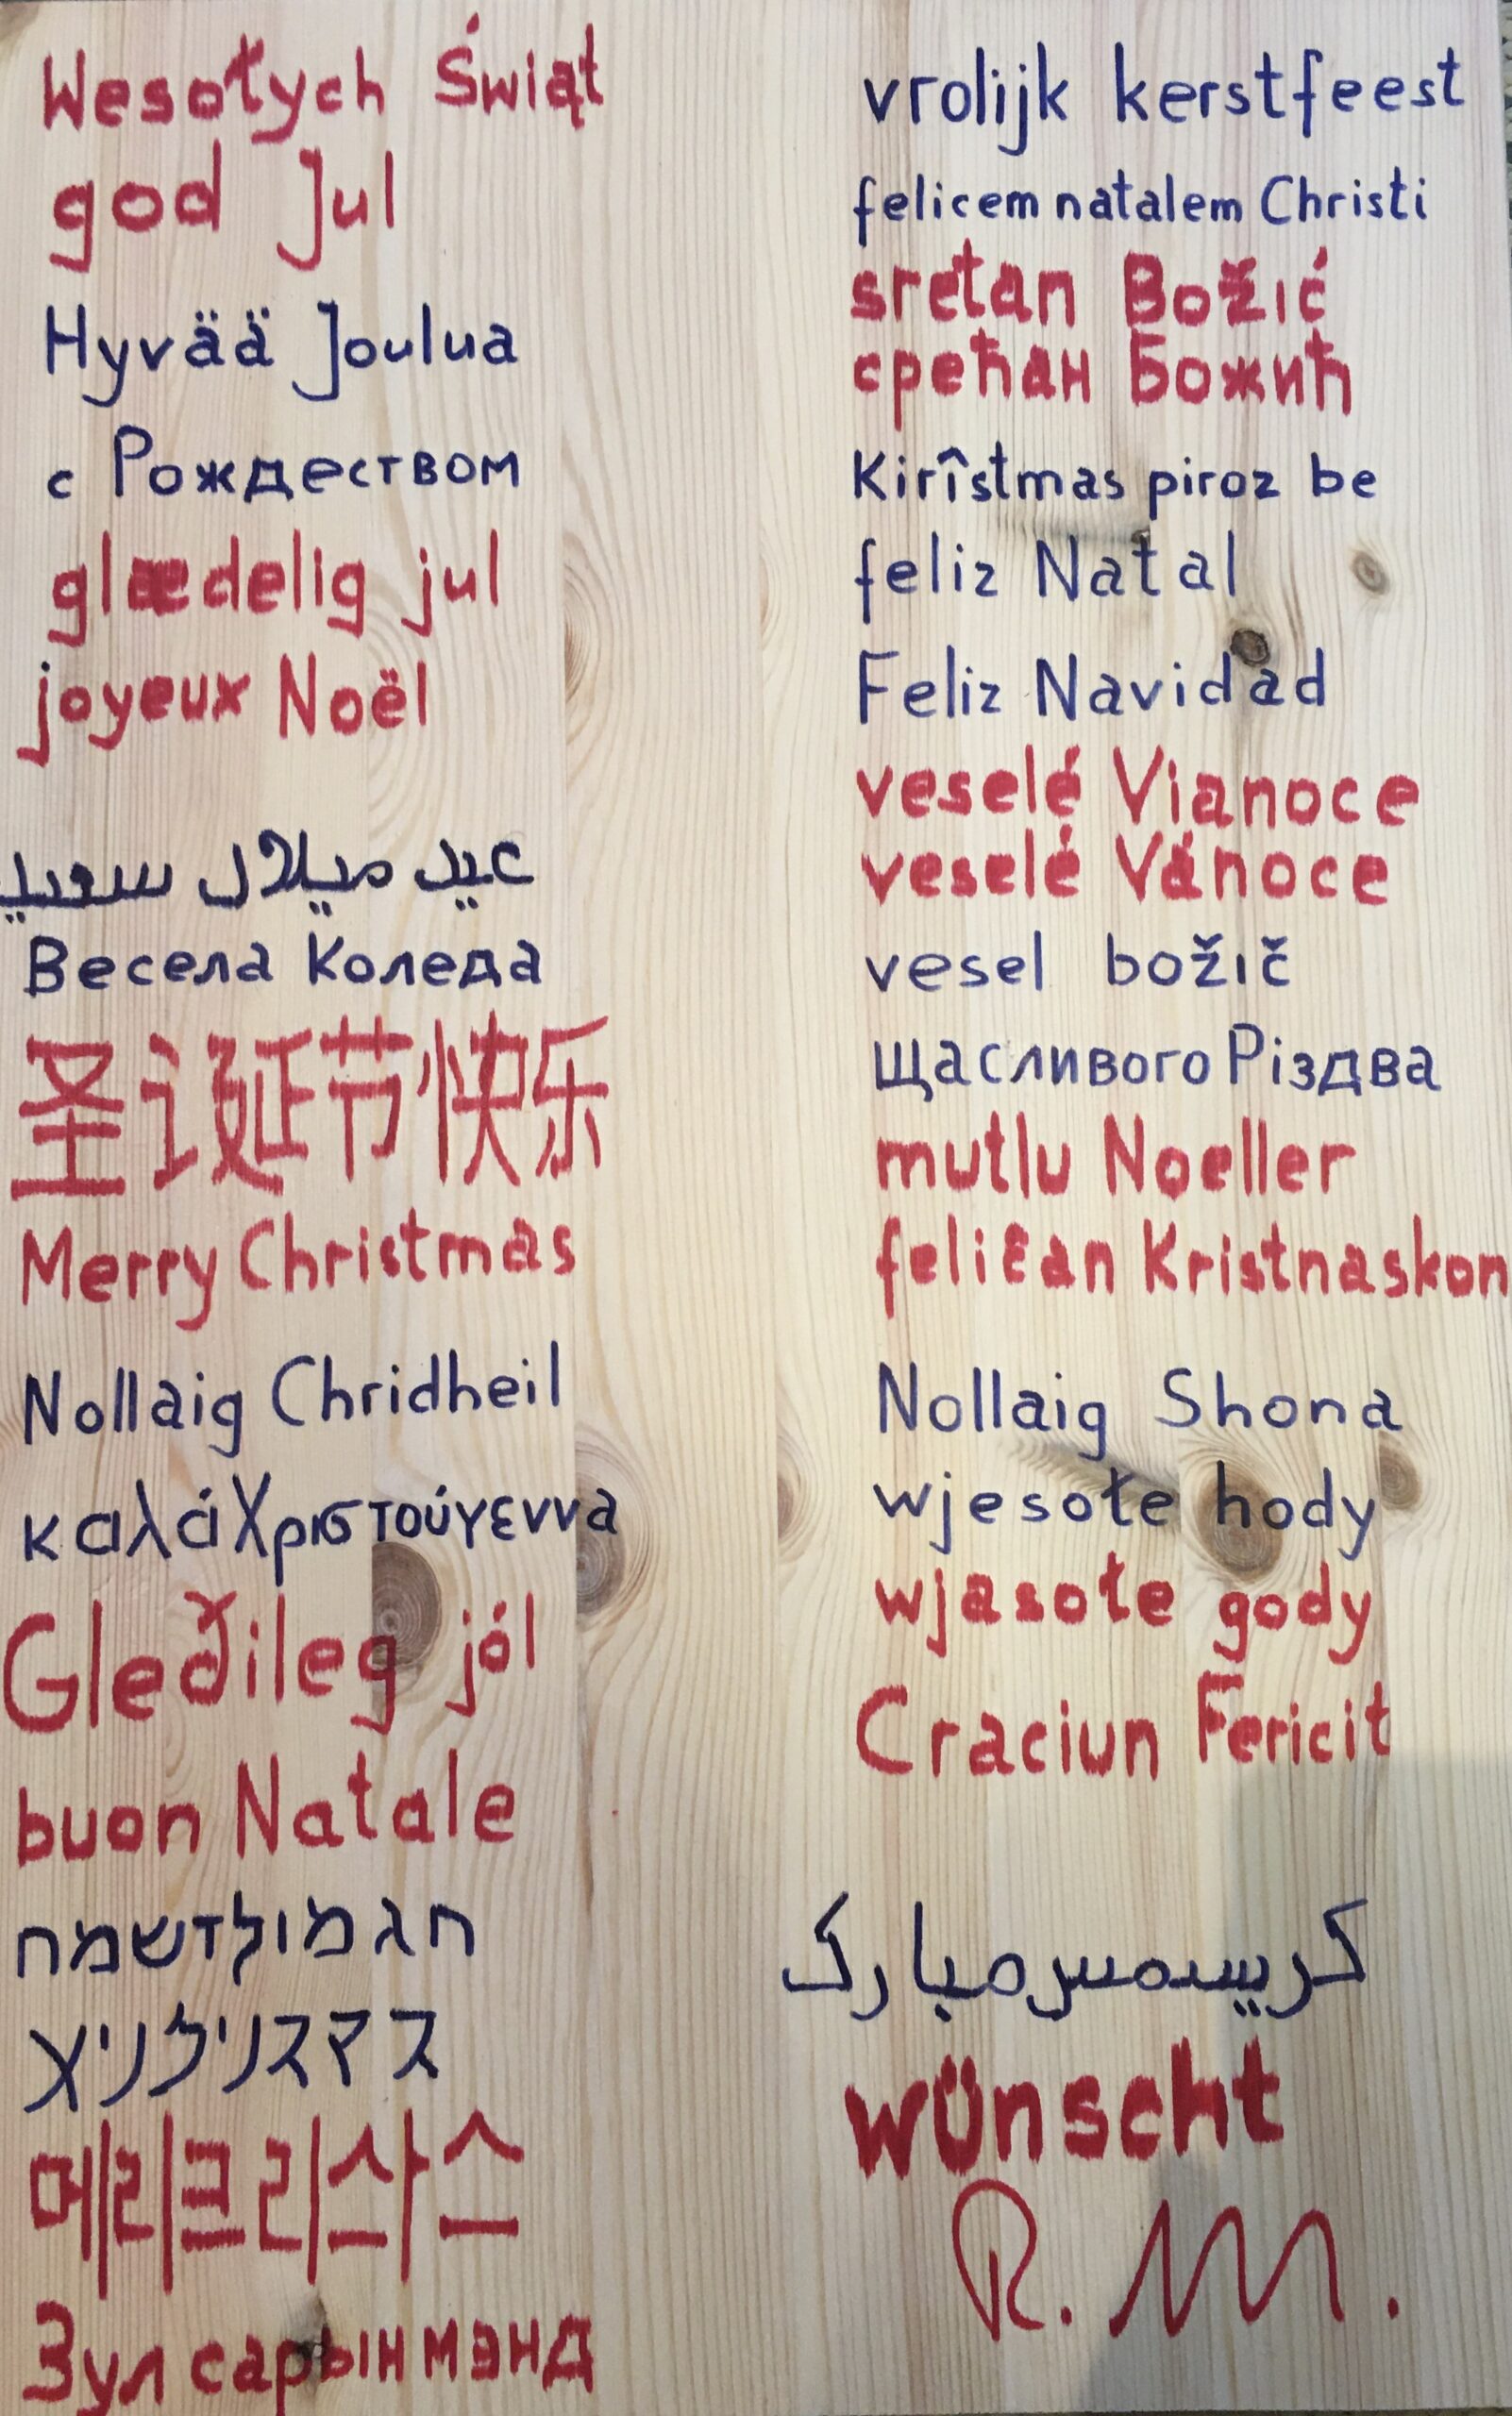 Wesołych Świąt
god Jul
Hyvää Joulua
с Рождеством
glædelig jul
joyeux Noël
عيد ميلاد سعيد
Весела Коледа
圣诞节快乐
Merry Christmas
Nollaig Chridheil
καλά Χριστούγεννα
Gleðileg jól
buon Natale
חג מולד שמח
메리크리스
Зул сарын мэнд
vrolijk kerstfeest
felicem natalem Christi
sretan Božić
срећан Божић
Kirîstmas piroz be
feliz Natal
Feliz Navidad
veselé Vianoce
veselé Vánoce
vesel božič
щасливого Різдва
mutlu Noeller
feliĉan Kristnaskon
Nollaig Shona
wjesołe hody
wjasołe gody
Craciun Fericit
كريسمس مبارک
wünscht
R. M.